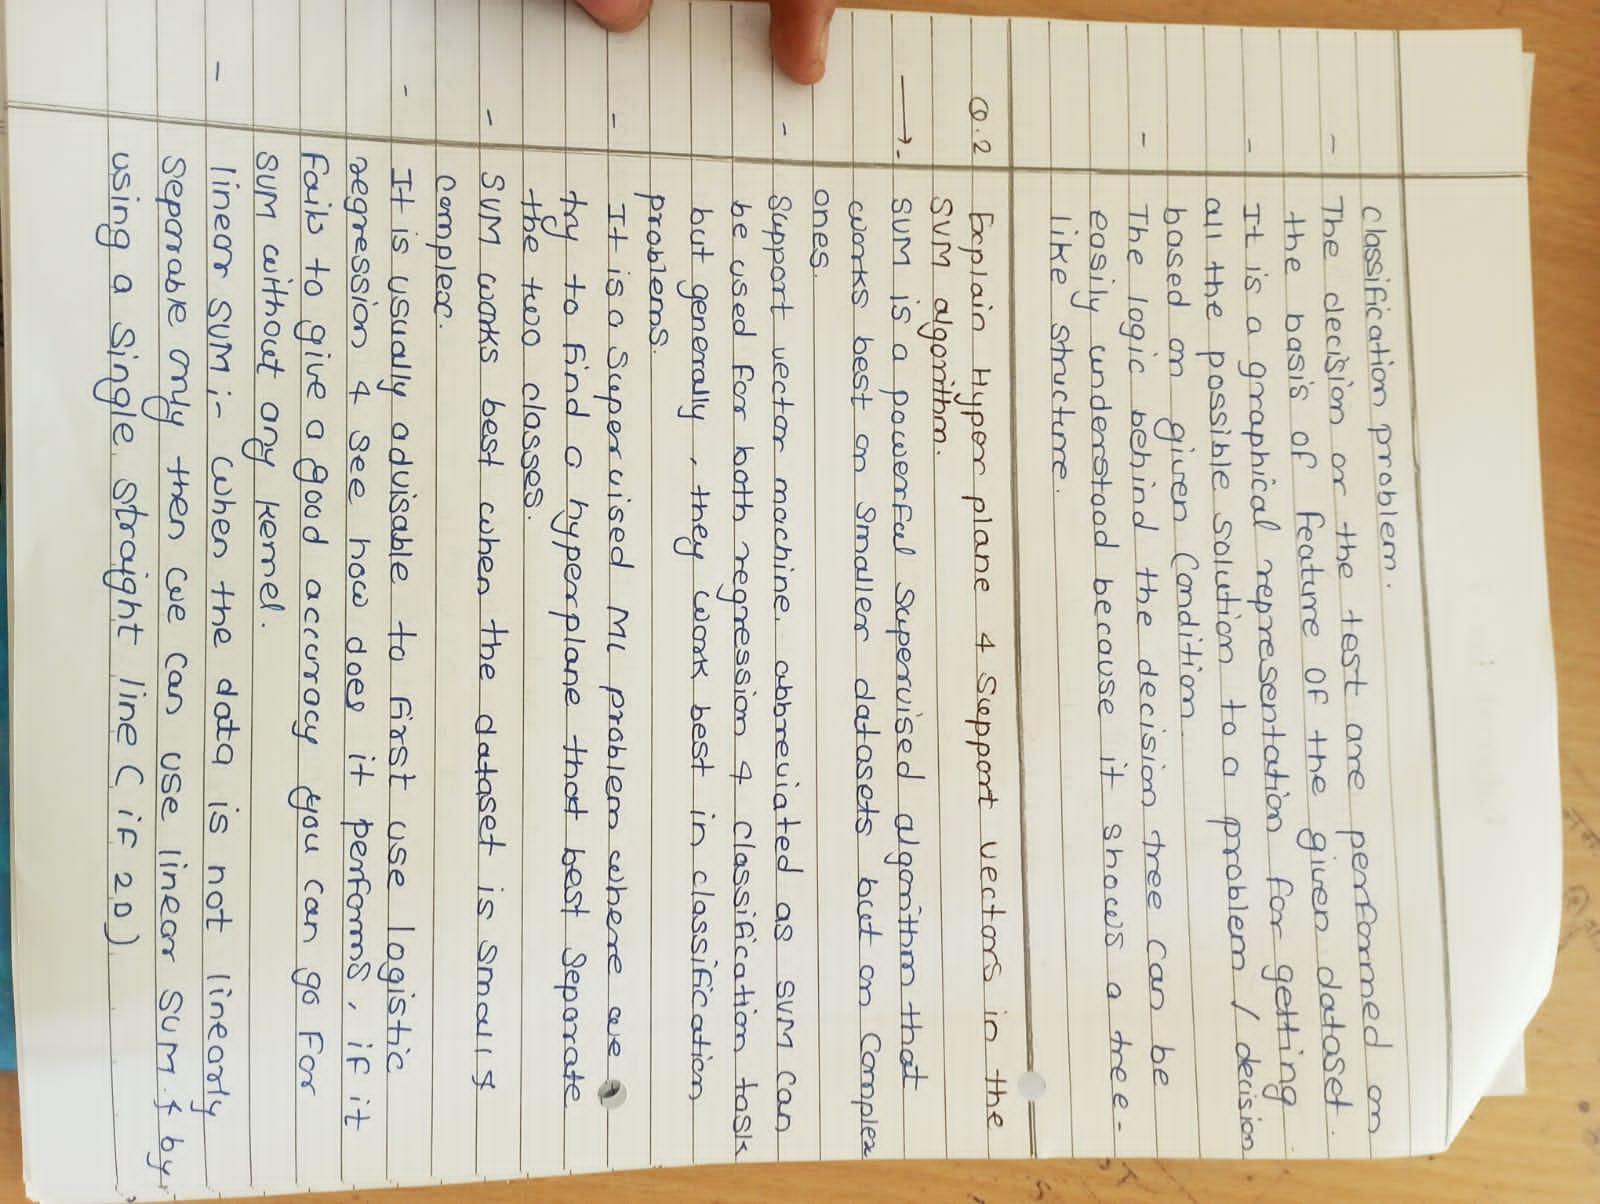 classification problem.
- The decision or the test are performed on
the basis of feature of the given dataset.
- It is a graphical representation for getting
all the possible solution to a problem / decision
based on given condition.
- The logic behind the decision tree can be
easily understood because it shows a tree-
like structure.
Q.2 Explain Hyper plane & Support vectors in the
SVM algorithm.
→ - SVM is a powerful supervised algorithm that
works best on smaller datasets but on complex
ones.
- Support vector machine, abbreviated as SVM can
be used for both regression & classification task
but generally, they work best in classification
problems.
- It is a supervised ML problem where we
try to find a hyperplane that best separate
the two classes.
- SVM works best when the dataset is small &
complex.
- It is usually advisable to first use logistic
regression & see how does it performs, if it
fails to give a good accuracy you can go for
SVM without any kernel.
- linear SVM :- When the data is not linearly
separable only then we can use linear SVM & by
using a single straight line (if 2D)